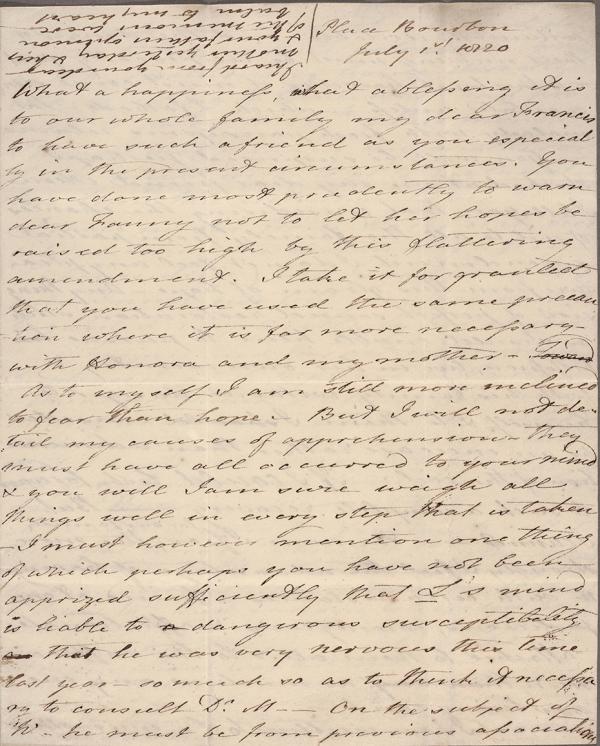 Place Bourbon
July 1st 1820
I heard from
yesterday & his
your father's opinion
of his
balm to my heart
What a happiness, what a blessing it is
to our whole family my dear Francis
to have such a friend as you especial
ly in the present circumstances. You
have done most prudently to warn
dear Fanny not to let her hopes be
raised too high by this flattering
amendment. I take it for granted
that you have used the same precau
-tion where it is far more necessary -
with Honora and my mother -
As to myself I am still more inclined
to fear than hope - But I will not de-
tail my causes of apprehension - they
must have all occurred to your mind
& you will I am sure weigh all
things well in every step that is taken
- I must however mention one thing
of which perhaps you have not been
apprized sufficiently that L's mind
is liable to a dangerous susceptibility
that he was very nervous this time
last year - so much so as to think it necessa
ry to consult Dr. M-- On the subject of
he must be from previous association